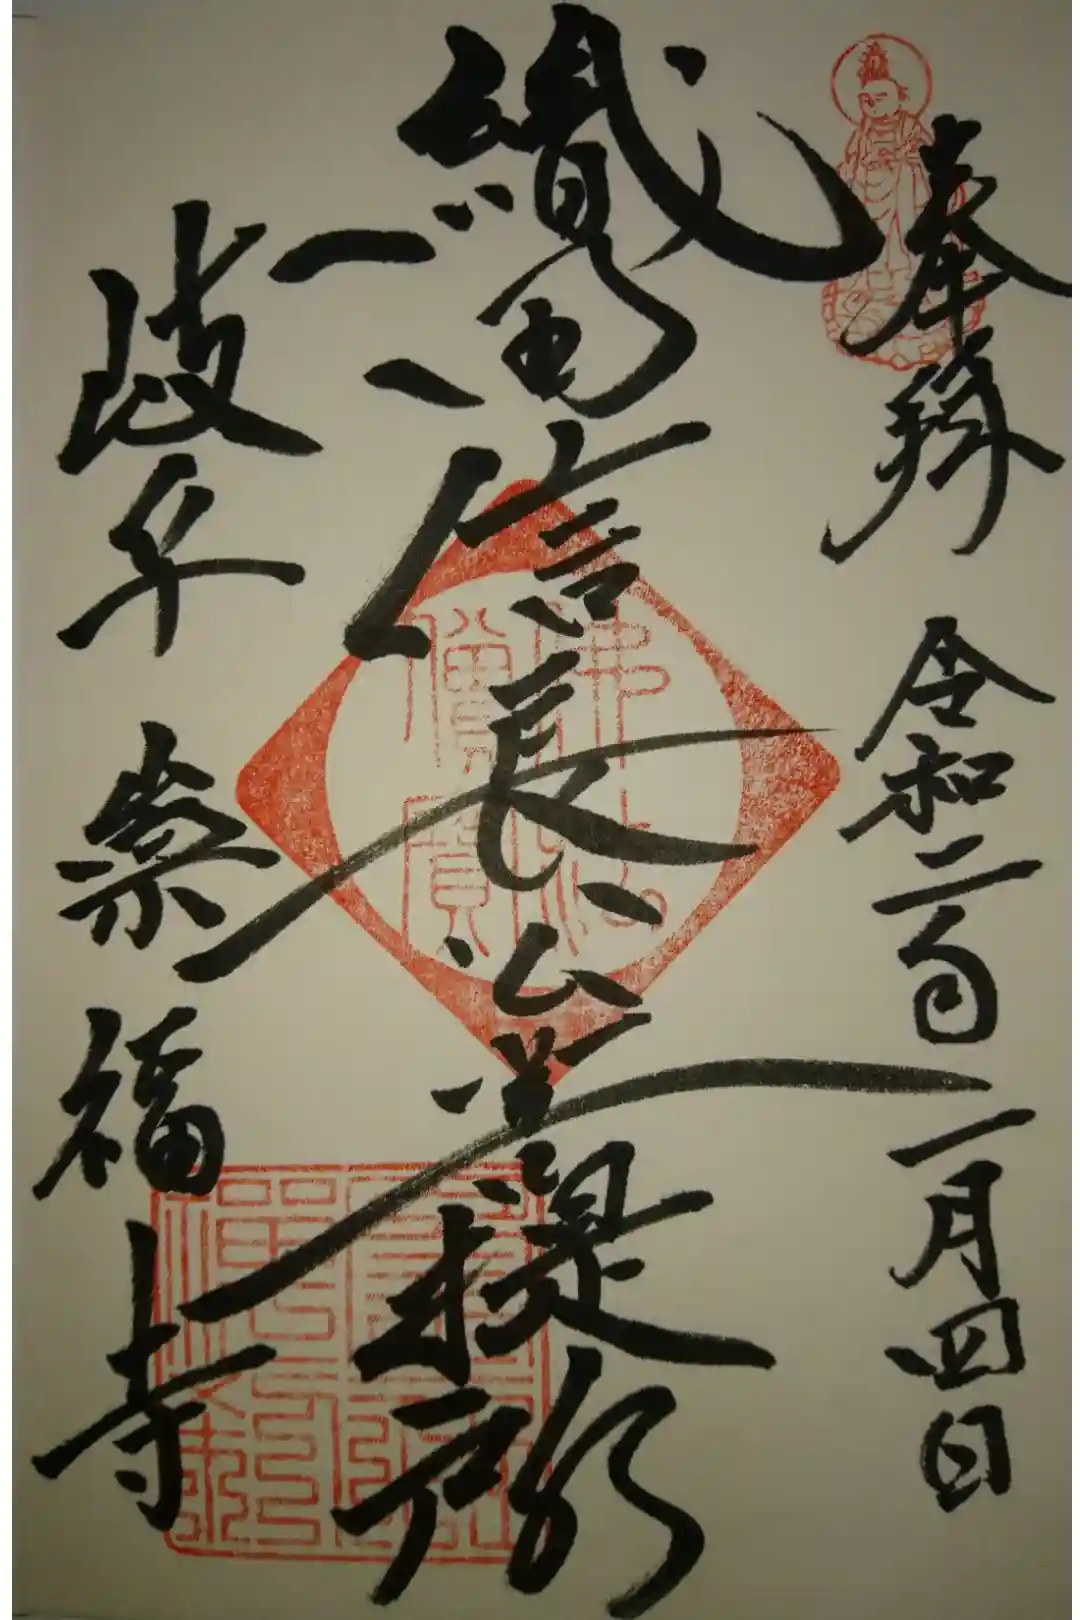 奉拝 令和二年一月四日
織田信長公菩提所
岐阜 崇福寺
佛法
僧寳